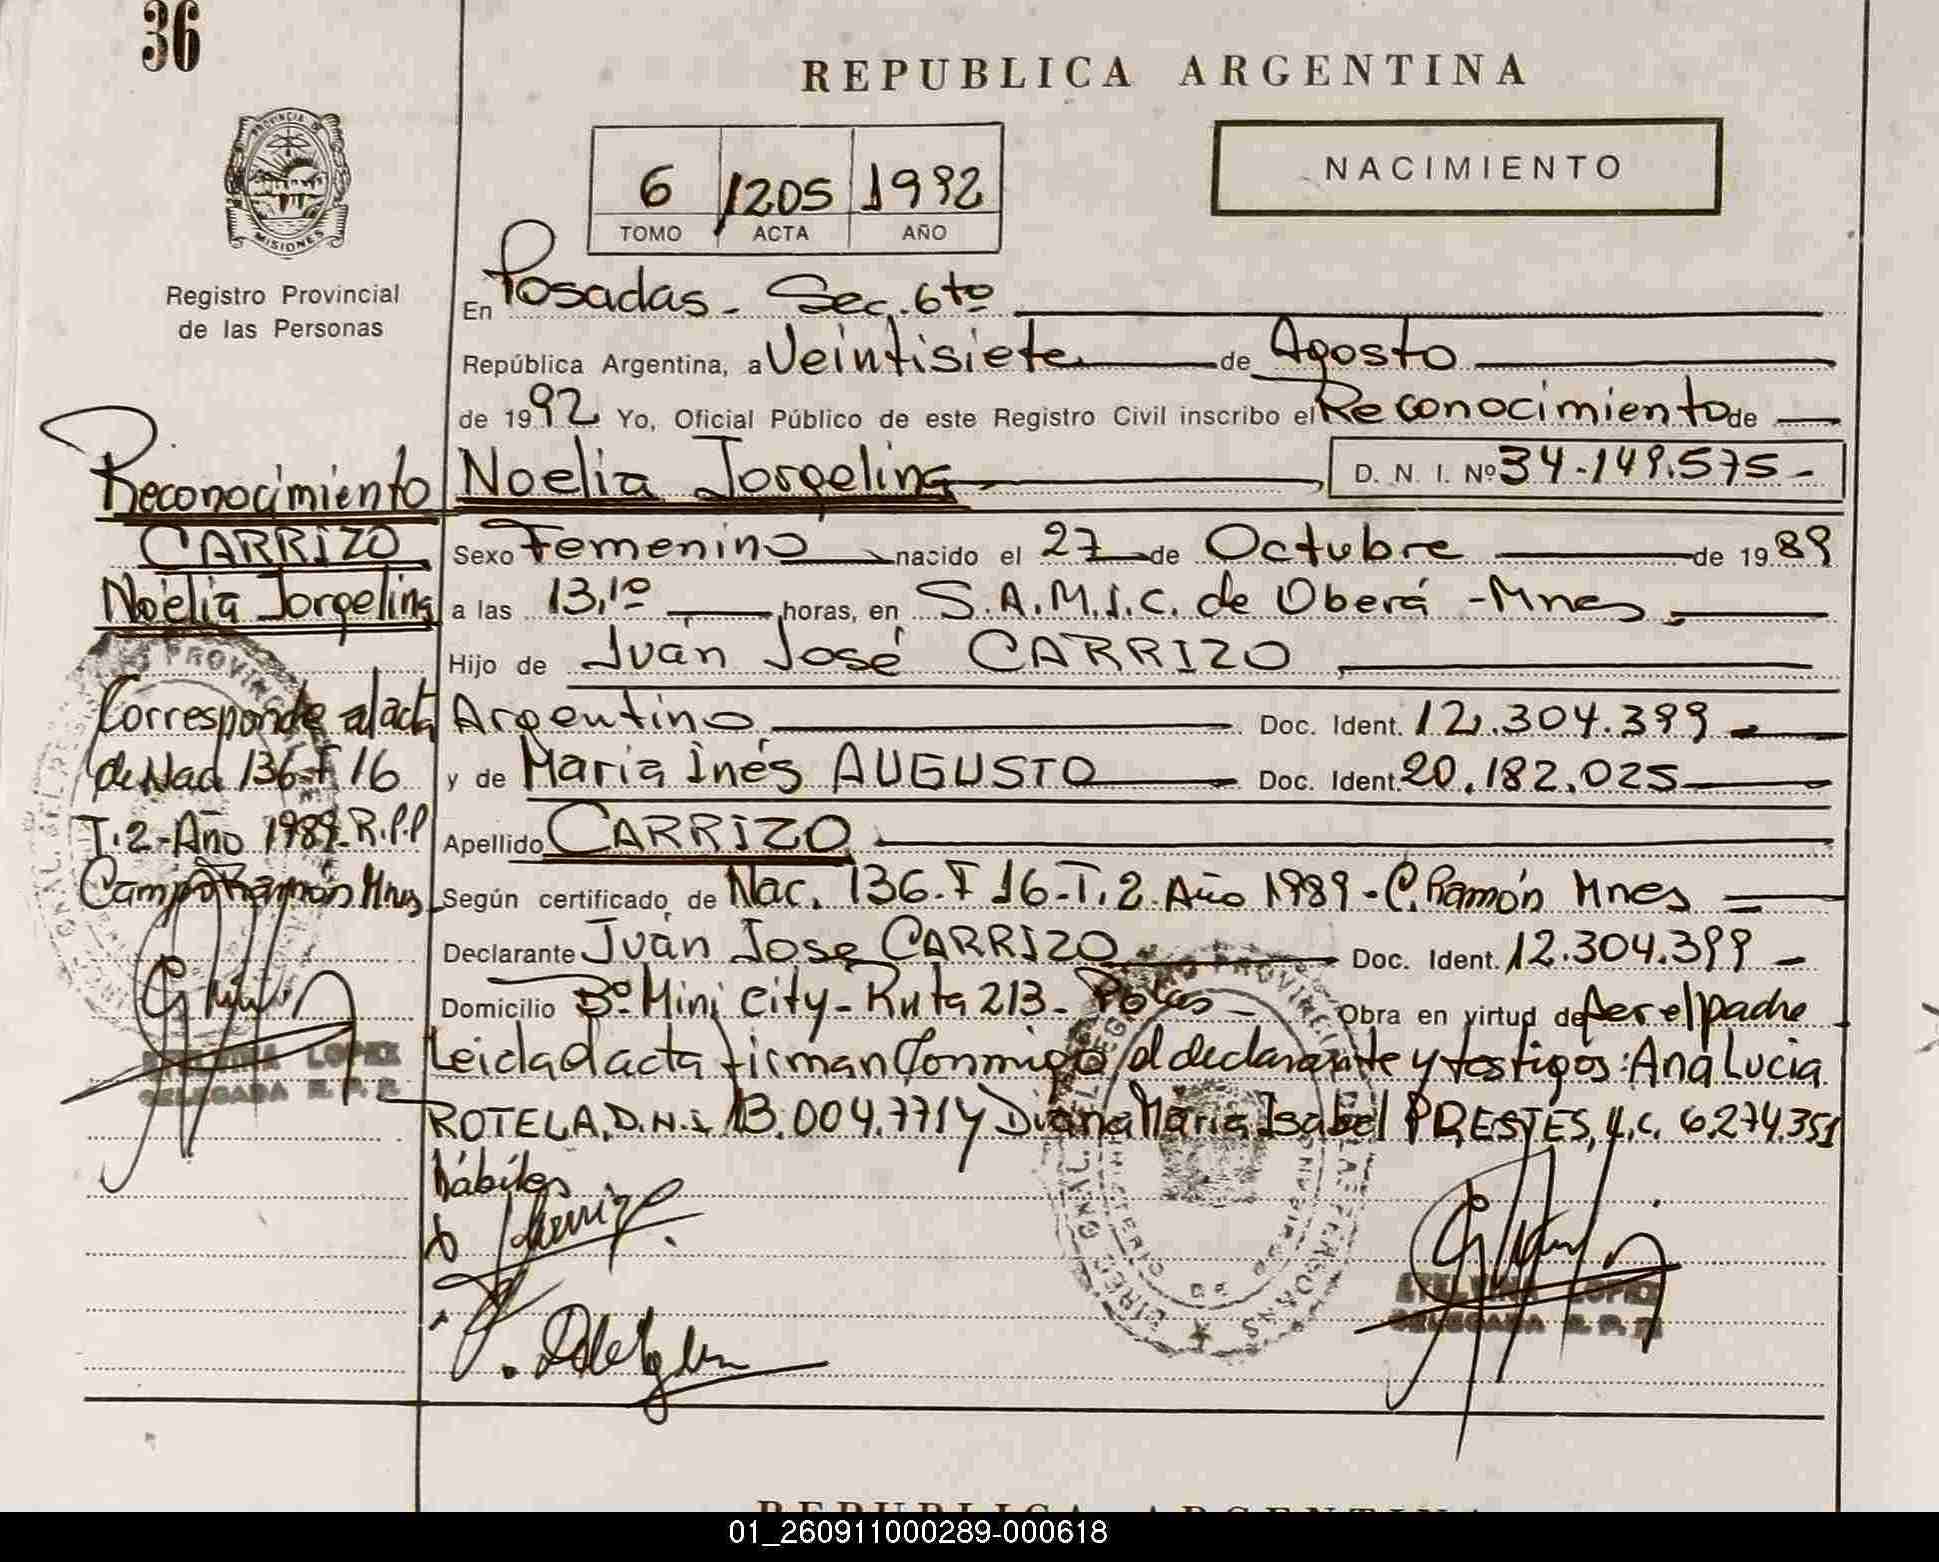 36
REPUBLICA ARGENTINA
PROVINCIA DE
MISIONES
Registro Provincial
de las Personas
6 1205 1992
TOMO ACTA AÑO
NACIMIENTO
En Posadas - Sec. 6to
República Argentina, a Veintisiete de Agosto
de 1992 Yo, Oficial Público de este Registro Civil inscribo el Reconocimiento de
Noelia Jorgelina D. N. I. Nº 34.149.575-
Sexo Femenino nacido el 27 de Octubre de 1989
a las 13,10 horas, en S.A.M.I.C. de Oberá - Mnes
Hijo de Juan José CARRIZO
Argentino Doc. Ident. 12.304.399
y de Maria Inés AUGUSTO Doc. Ident. 20.182.025
Apellido CARRIZO
Según certificado de Nac. 136-F 16-T.2-Año 1989-C. Ramón Mnes
Declarante Juan Jose CARRIZO Doc. Ident. 12.304.399
Domicilio Bº Mini City - Ruta 213 - Pdas - Obra en virtud de ser el padre
Leida el acta firman conmigo el declarante y testigos: Ana Lucia
ROTELA, D.N.I. 13.004.771 y Diana Maria Isabel PRESTES, L.C. 6.274.351
hábiles
Reconocimiento
CARRIZO
Noelia Jorgelina
Corresponde al acta
de Nac 136-F 16
T.2-Año 1989-R.P.P
Campo Ramón Mnes
LOPEZ
DELEGADA R. P. P.
LOPEZ
DELEGADA R. P. P.
REPUBLICA ARGENTINA
01_260911000289-000618